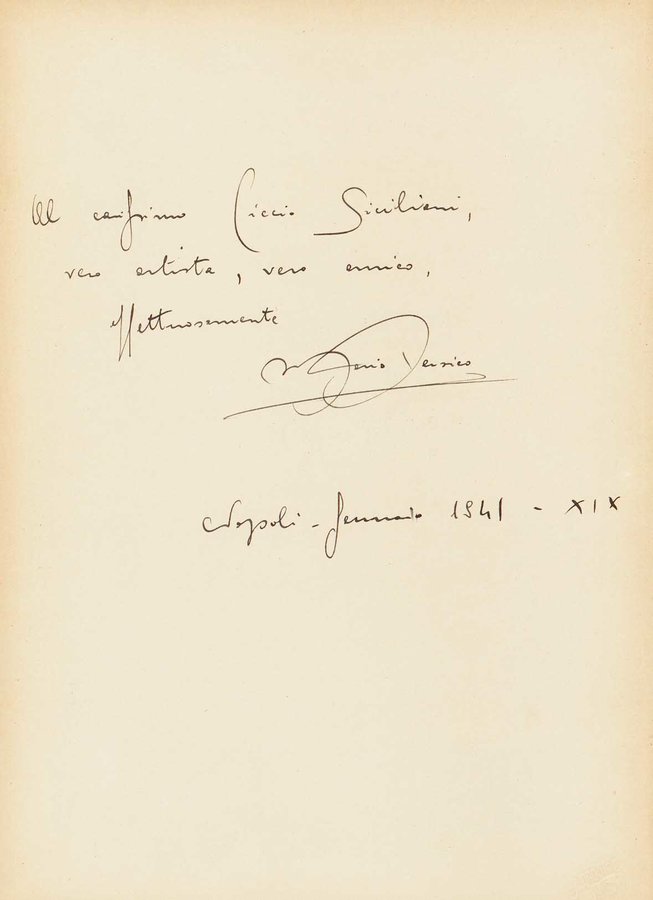 Al carissimo Ciccio Siciliani,
vero artista, vero amico,
affettuosamente
Mario Persico
Napoli - Gennaio 1941 - XIX